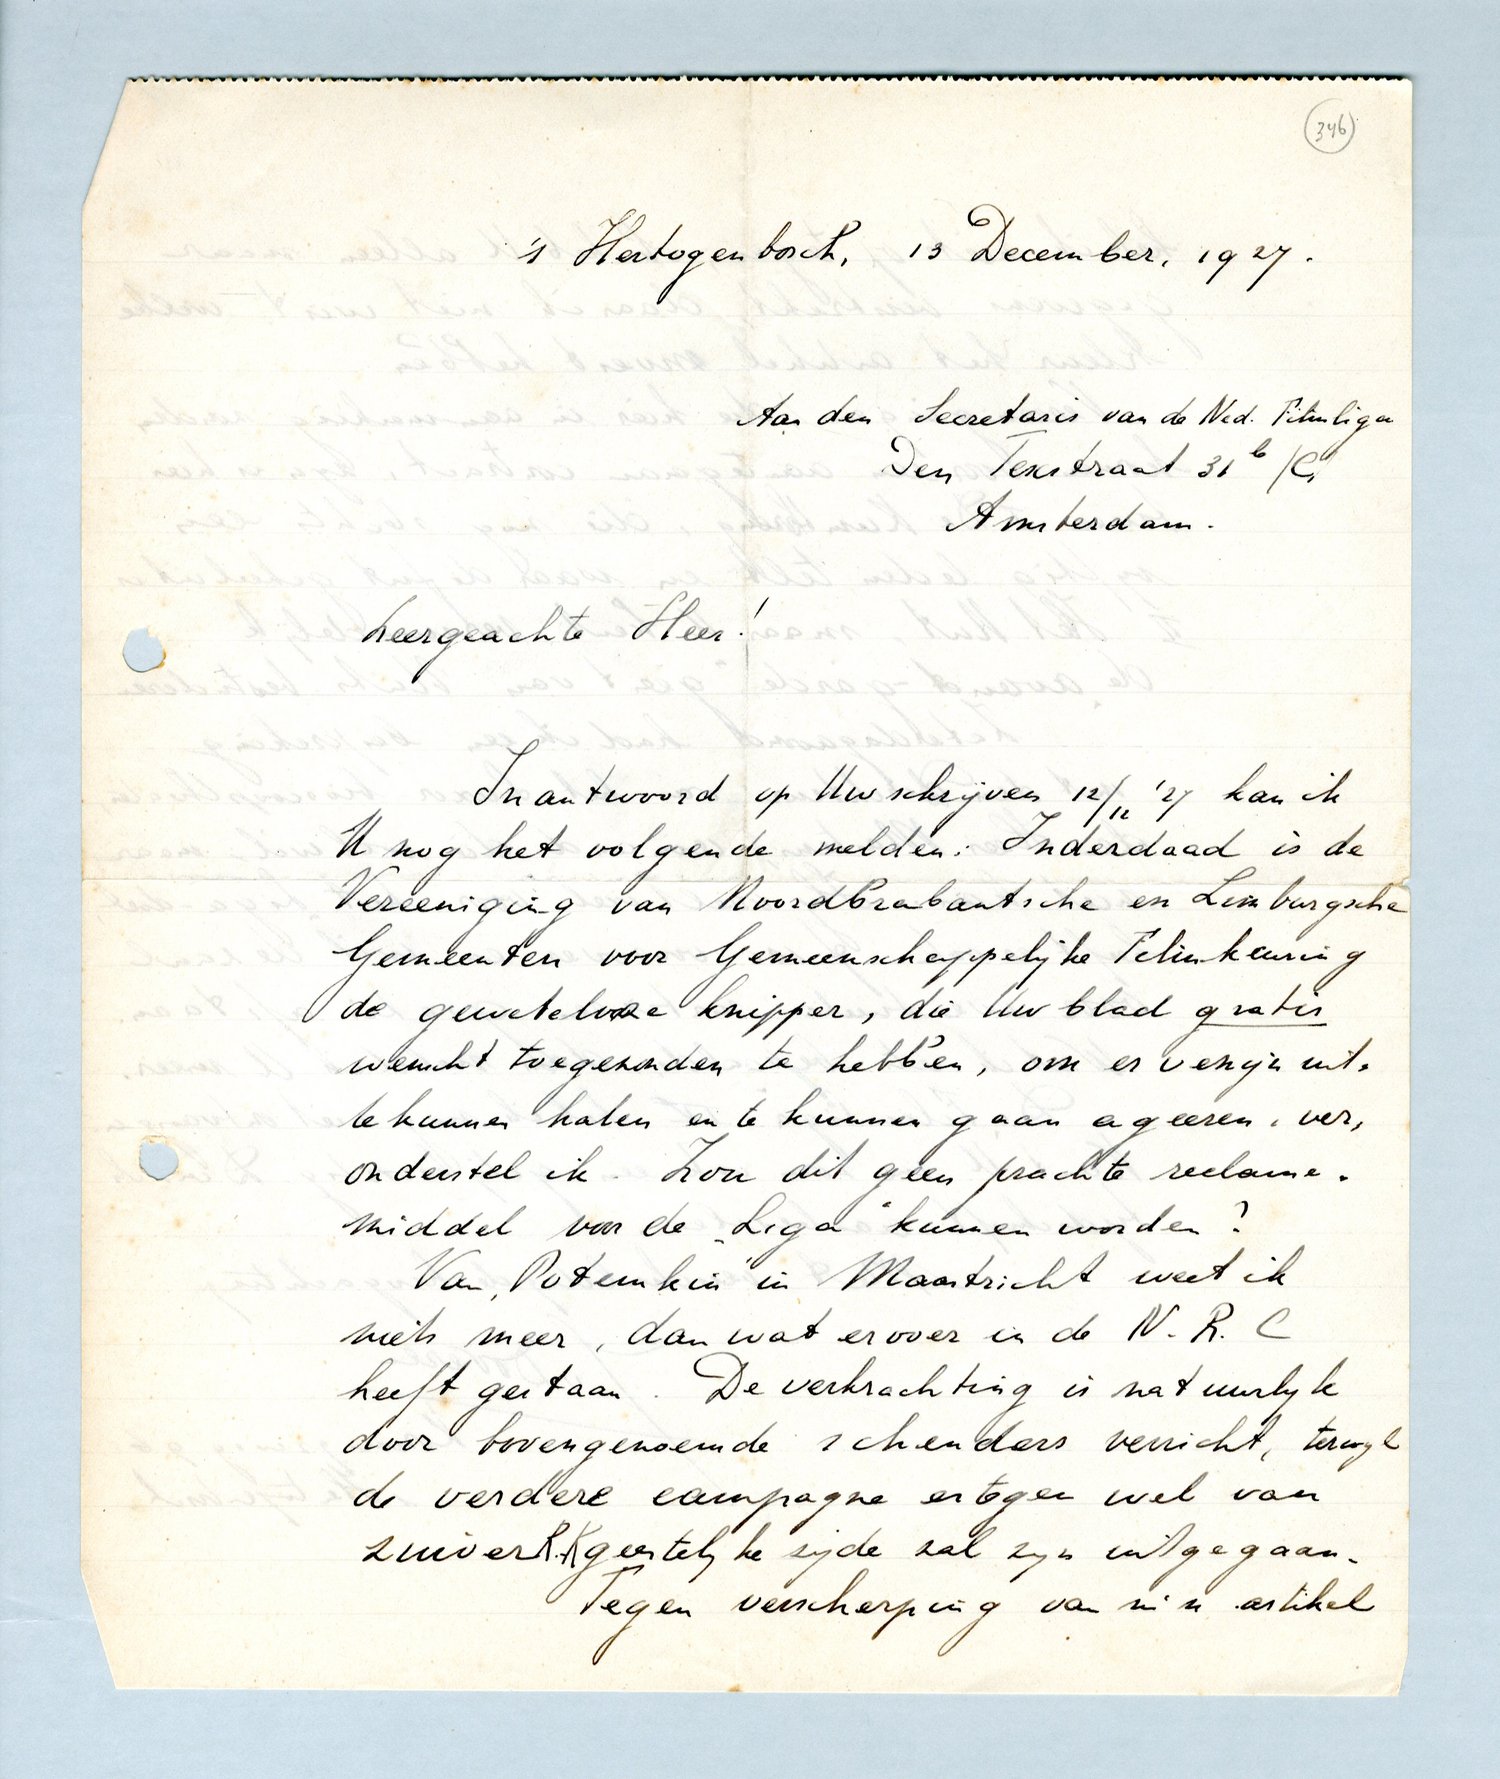 346
's Hertogenbosch, 13 December, 1927.
Aan den Secretaris van de Ned. Filmliga
Den Texstraat 31 b
Amsterdam.
Zeergeachte Heer!
In antwoord op Uw schrijven 12/12 '27 kan ik
U nog het volgende melden: Inderdaad is de
Vereeniging van Noordbrabantsche en Limburgsche
Gemeenten voor Gemeenschappelijke Filmkeuring
de gewetelooze knipper, die Uw blad gratis
wenscht toegezonden te hebben, om er venijn uit-
te kunnen halen en te kunnen gaan ageeren, ver,
onderstel ik. Zou dit geen prachte reclame-
middel voor de „Liga" kunnen worden?
Van „Potemkin" in Maastricht weet ik
niets meer, dan wat erover in de N. R. C
heeft gestaan. De verkrachting is natuurlijk
door bovengenoemde schenders verricht, terwijl
de verdere campagne ertegen wel van
zuiver R.K geestelijke zijde zal zijn uitgegaan.
Tegen verscherping van m'n artikel